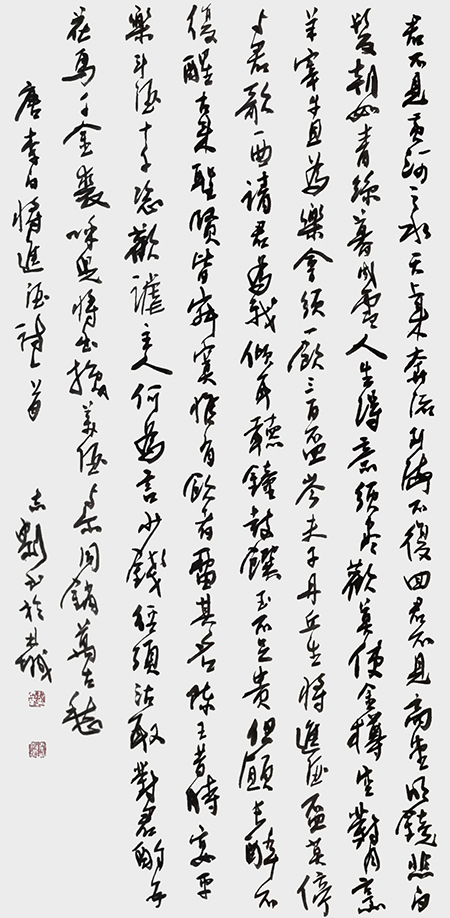 君不見黃河之水天上來奔流到海不復回君不見高堂明鏡悲白
髮朝如青絲暮成雪人生得意須盡歡莫使金樽空對月烹
羊宰牛且為樂會須一飲三百盃岑夫子丹丘生將進酒盃莫停
与君歌一曲請君為我傾耳聽鐘鼓饌玉不足貴但願長醉不
復醒古來聖賢皆寂寞惟有飲者留其名陳王昔時宴平
樂斗酒十千恣歡謔主人何為言少錢徑須沽取對君酌五
花馬千金裘呼兒將出換美酒与爾同銷萬古愁
唐李白將進酒詩一首
志剛书於